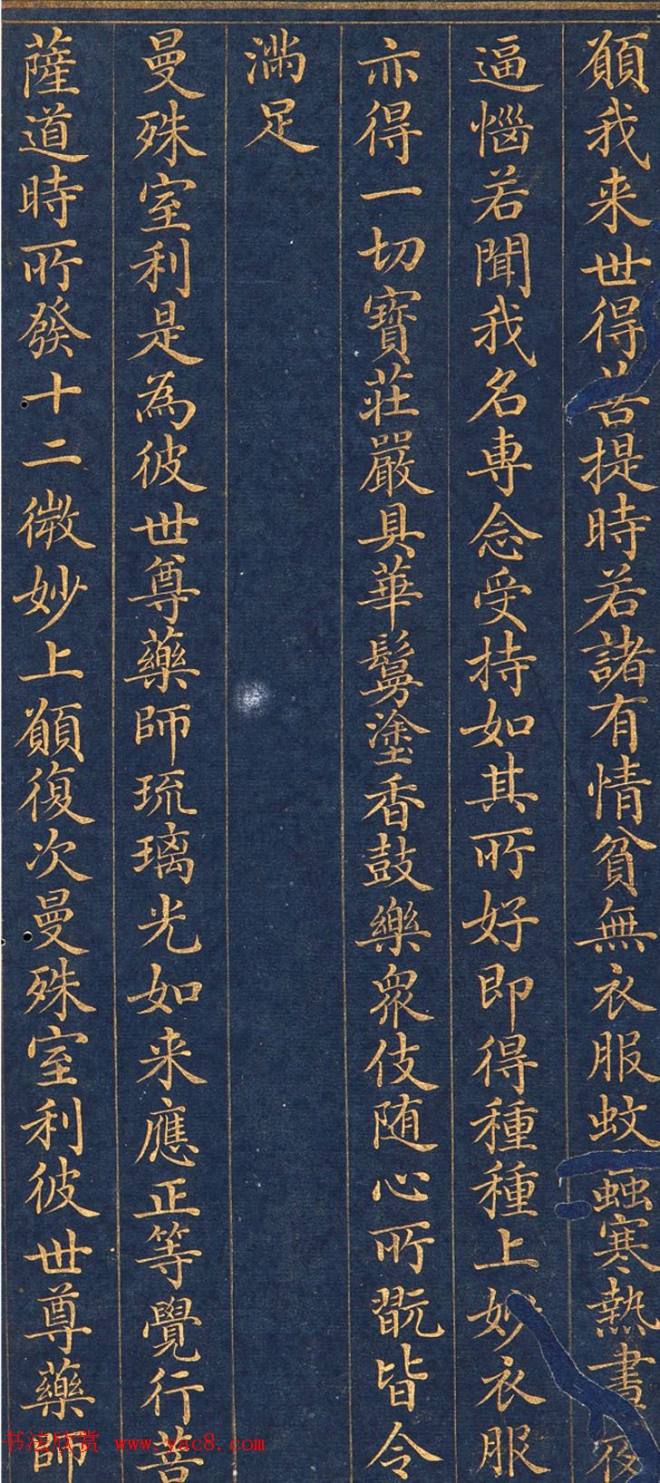 願我来世得菩提時若諸有情貧無衣服蚊䖟寒熱晝夜
逼惱若聞我名專念受持如其所好即得種種上妙衣服
亦得一切寶莊嚴具華鬘塗香鼓樂衆伎随心所翫皆令
滿足
曼殊室利是為彼世尊藥師琉璃光如来應正等覺行菩
薩道時所發十二微妙上願復次曼殊室利彼世尊藥師
书法欣赏 www.yac8.com